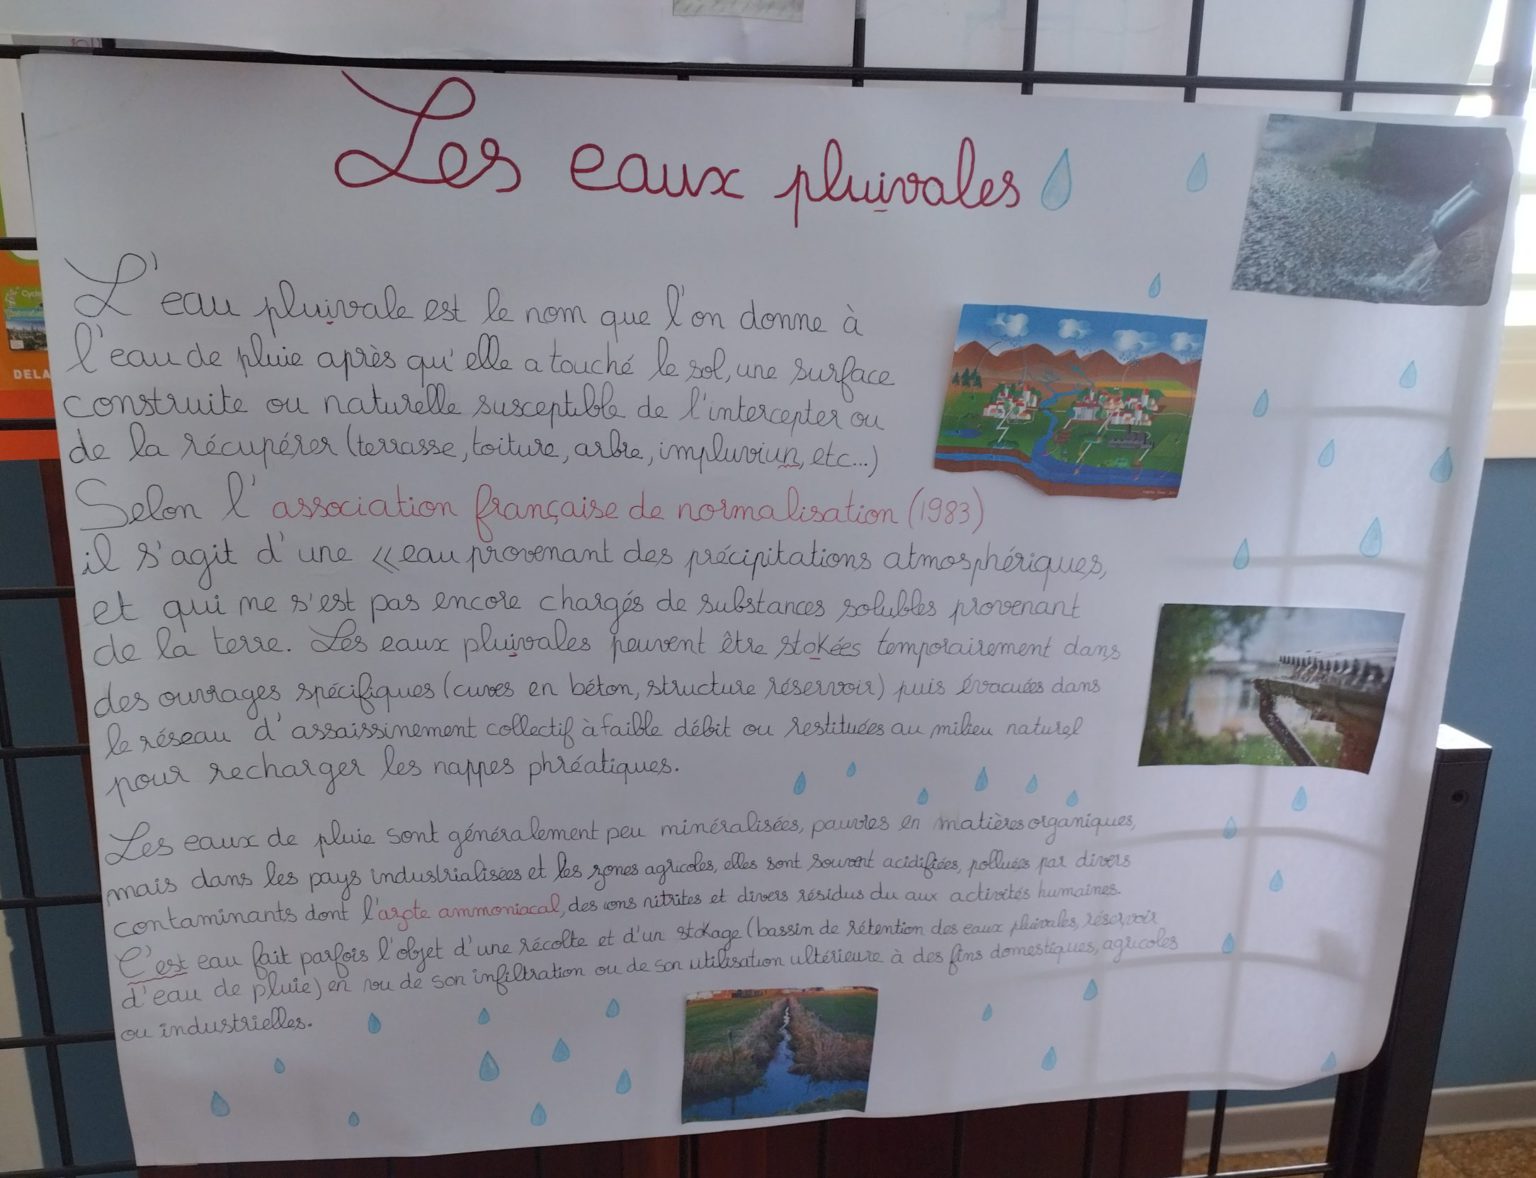 Les eaux pluivales
L'eau pluivale est le nom que l'on donne à
l'eau de pluie après qu'elle a touché le sol, une surface
construite ou naturelle susceptible de l'intercepter ou
de la récupérer (terrasse, toiture, arbre, impluviun, etc...)
Selon l'association française de normalisation (1983)
il s'agit d'une «eau provenant des précipitations atmosphériques,
et qui ne s'est pas encore chargés de substances solubles provenant
de la terre. Les eaux pluivales peuvent être stokées temporairement dans
des ouvrages spécifiques (cuves en béton, structure réservoir) puis évacuées dans
le réseau d'assaissinement collectif à faible débit ou restituées au milieu naturel
pour recharger les nappes phréatiques.
Les eaux de pluie sont généralement peu minéralisées, pauvres en matières organiques,
mais dans les pays industrialisées et les zones agricoles, elles sont souvent acidifiées, polluées par divers
contaminants dont l'azote ammoniacal, des ions nitrites et divers résidus du aux activités humaines.
C'est eau fait parfois l'objet d'une récolte et d'un stokage (bassin de rétention des eaux pluivales, réservoir
d'eau de pluie) en vu de son infiltration ou de son utilisation ultérieure à des fins domestiques, agricoles
ou industrielles.
DELA